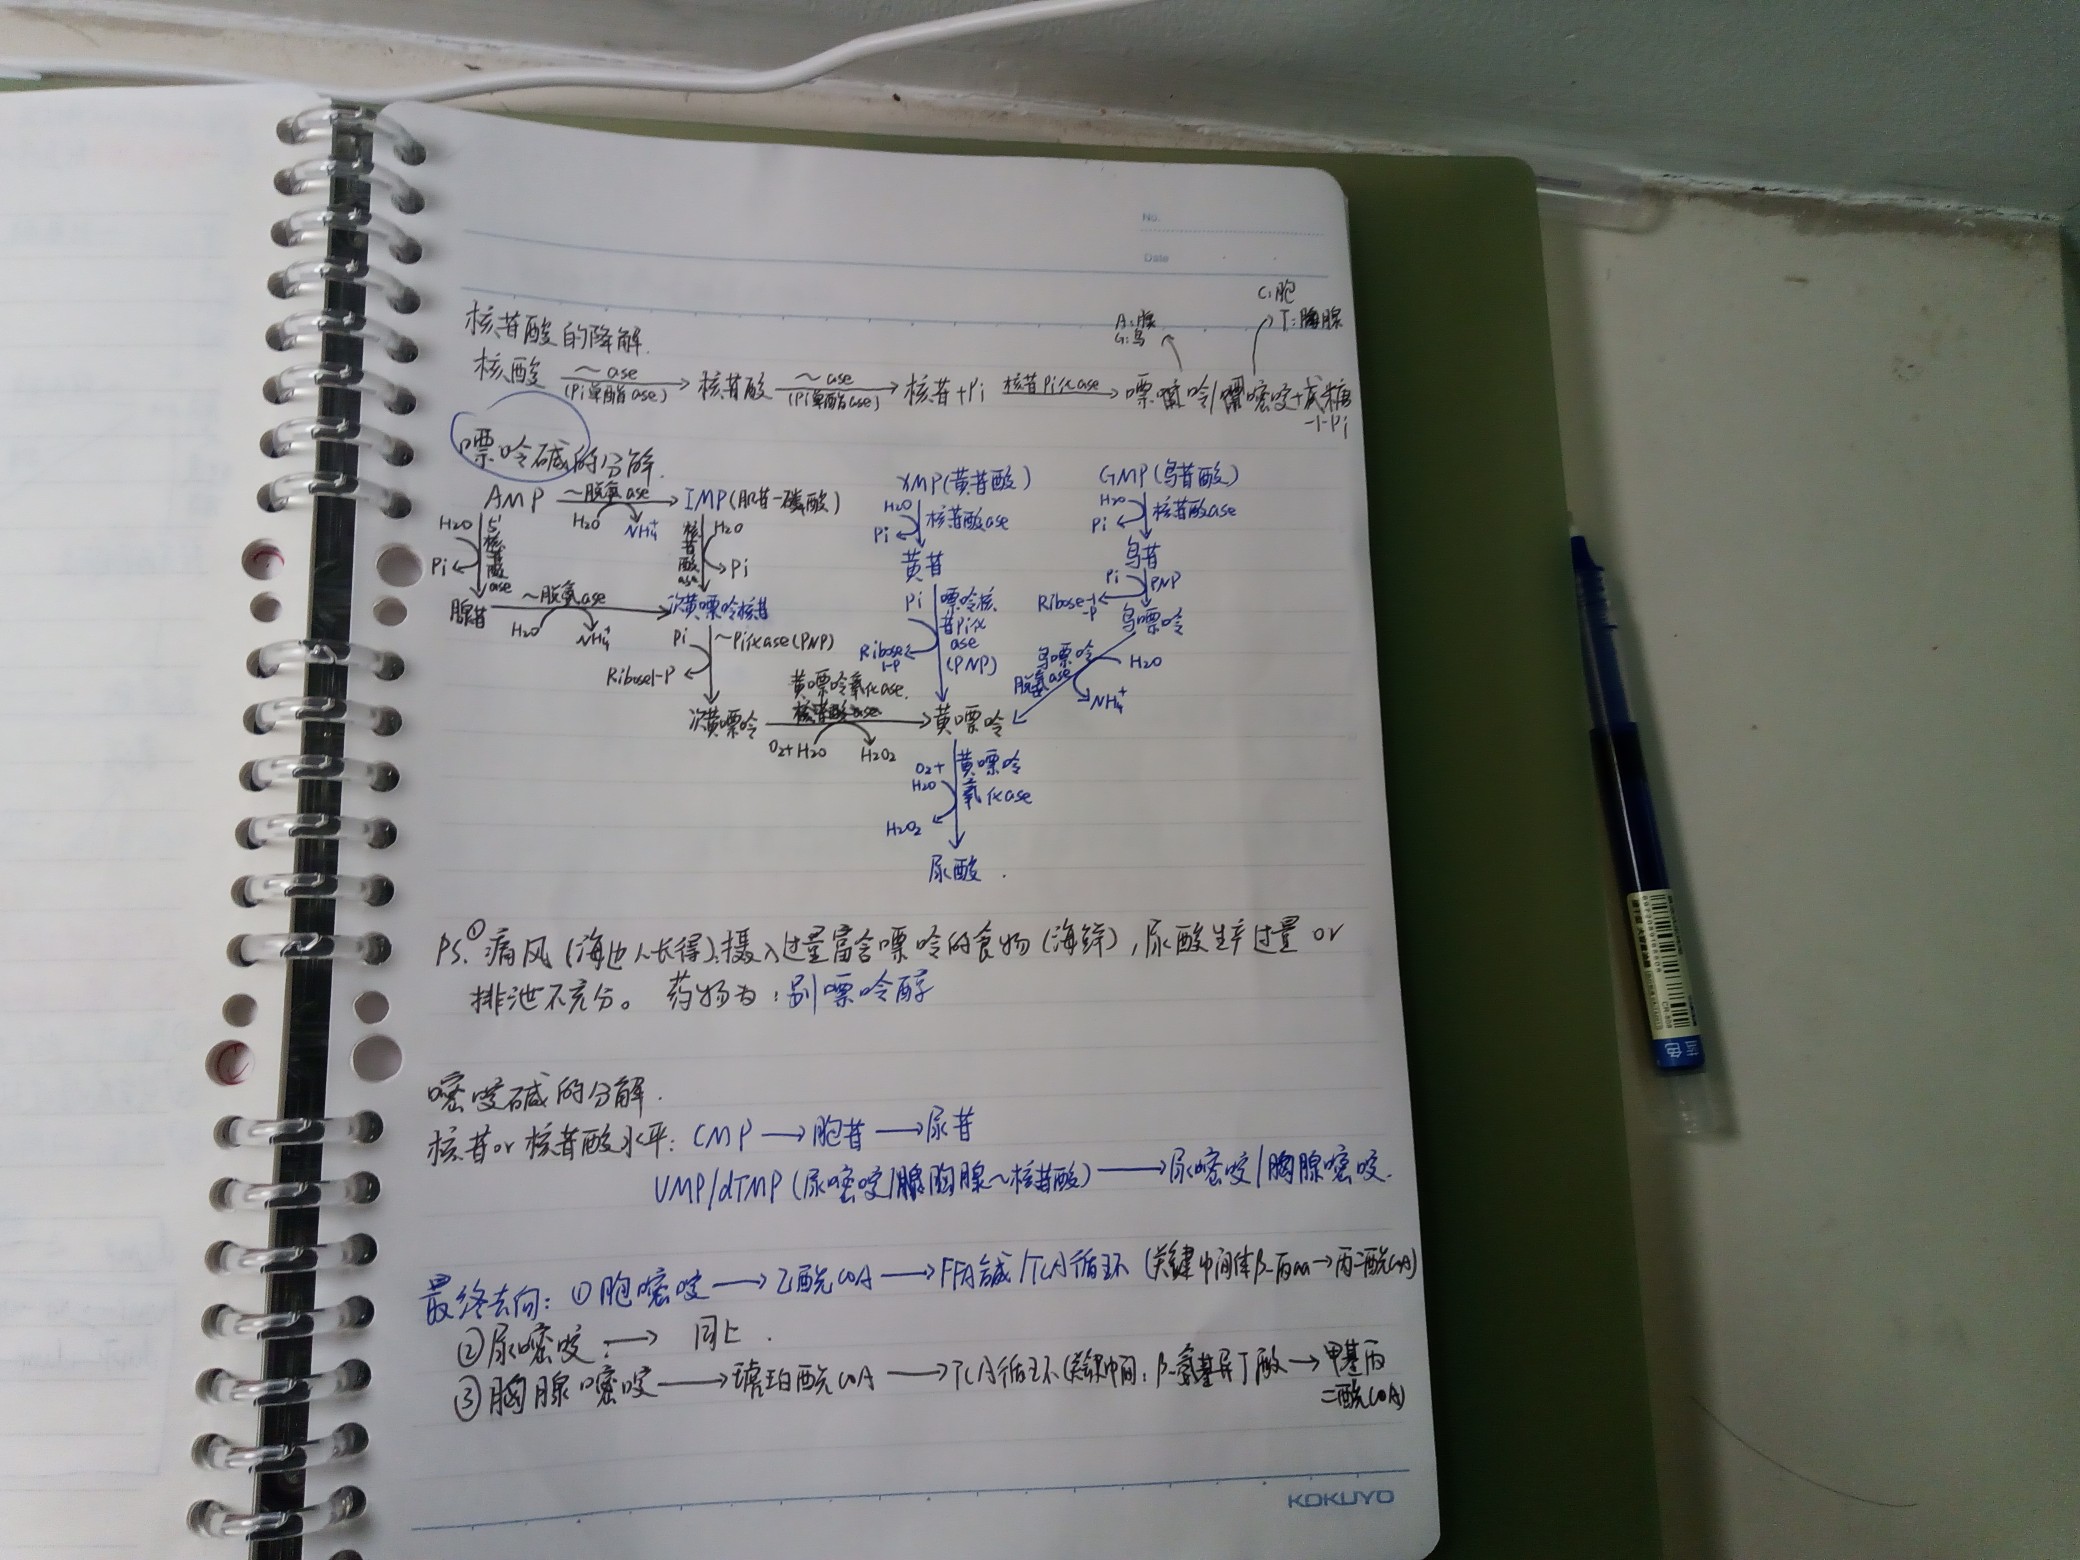 No.
Date
C:胞
A:腺
T:胸腺
G:鸟
核苷酸的降解.
核酸 ~ase (Pi单酯ase) → 核苷酸 ~ase (Pi单酯ase) → 核苷+Pi 核苷Pi化ase → 嘌呤/嘧啶+戊糖
-1-Pi
嘌呤碱的分解.
XMP(黄苷酸) GMP(鸟苷酸)
AMP ~脱氨ase → IMP(肌苷-磷酸)
H2O NH4+
H2O 5'核苷酸ase Pi
核苷酸ase H2O Pi
H2O 核苷酸ase Pi
H2O 核苷酸ase Pi
黄苷 鸟苷
腺苷 ~脱氨ase → 次黄嘌呤核苷
H2O NH4+
Pi 嘌呤核苷Pi化ase (PNP) Ribose 1-P
Pi PNP Ribose-1-P
鸟嘌呤
Pi ~Pi化ase(PNP)
Ribose1-P
鸟嘌呤脱氨ase H2O NH4+
次黄嘌呤 黄嘌呤氧化ase. → 黄嘌呤
O2+H2O H2O2
O2+H2O 黄嘌呤氧化ase
H2O2
尿酸.
PS.①痛风(海边人长得):摄入过量富含嘌呤的食物(海鲜),尿酸生产过量or
排泄不充分。 药物为:别嘌呤醇
嘧啶碱的分解.
核苷or核苷酸水平: CMP→胞苷→尿苷
UMP/dTMP(尿嘧啶/胸腺~核苷酸)→尿嘧啶/胸腺嘧啶.
最终去向: ①胞嘧啶→乙酰CoA→FFA合成/TCA循环(关键中间体β-丙aa→丙二酰CoA)
②尿嘧啶:→ 同上.
③胸腺嘧啶→琥珀酰CoA→TCA循环(关键中间:β-氨基异丁酸→甲基丙
二酰CoA)
KOKUYO
蓝色